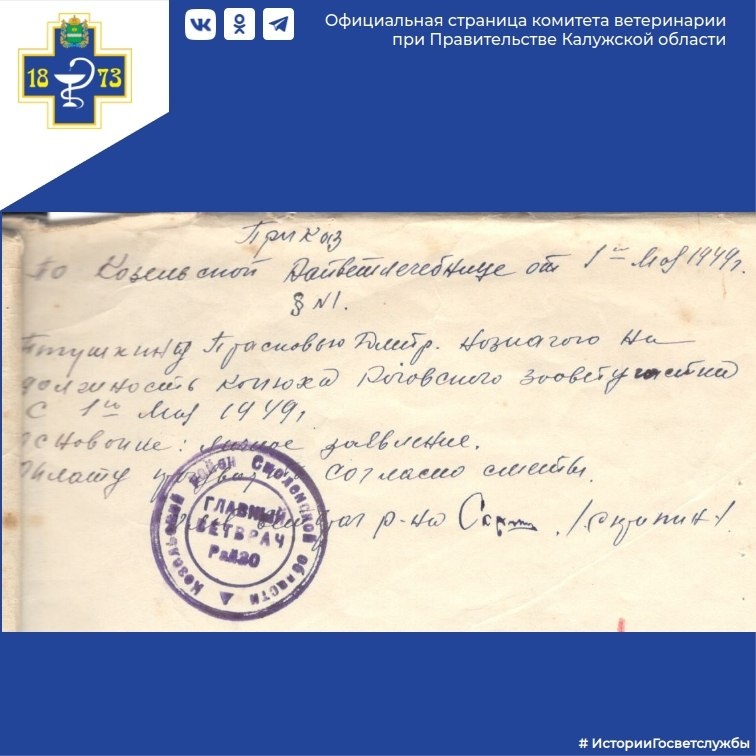 Официальная страница комитета ветеринарии
при Правительстве Калужской области
18 73
Приказ
по Козельской Райветлечебнице от 1го Мая 1949г.
§ №1.
Птушкину Прасковью Дмитр. назначаю на
должность конюха Роговского зооветучастка
с 1го Мая 1949г
Основание: личное заявление.
Оплату согласно сметы.
врач р-на /Скрипин/
Козельский район Смоленской области
ГЛАВНЫЙ
ВЕТВРАЧ
# ИсторииГосветслужбы